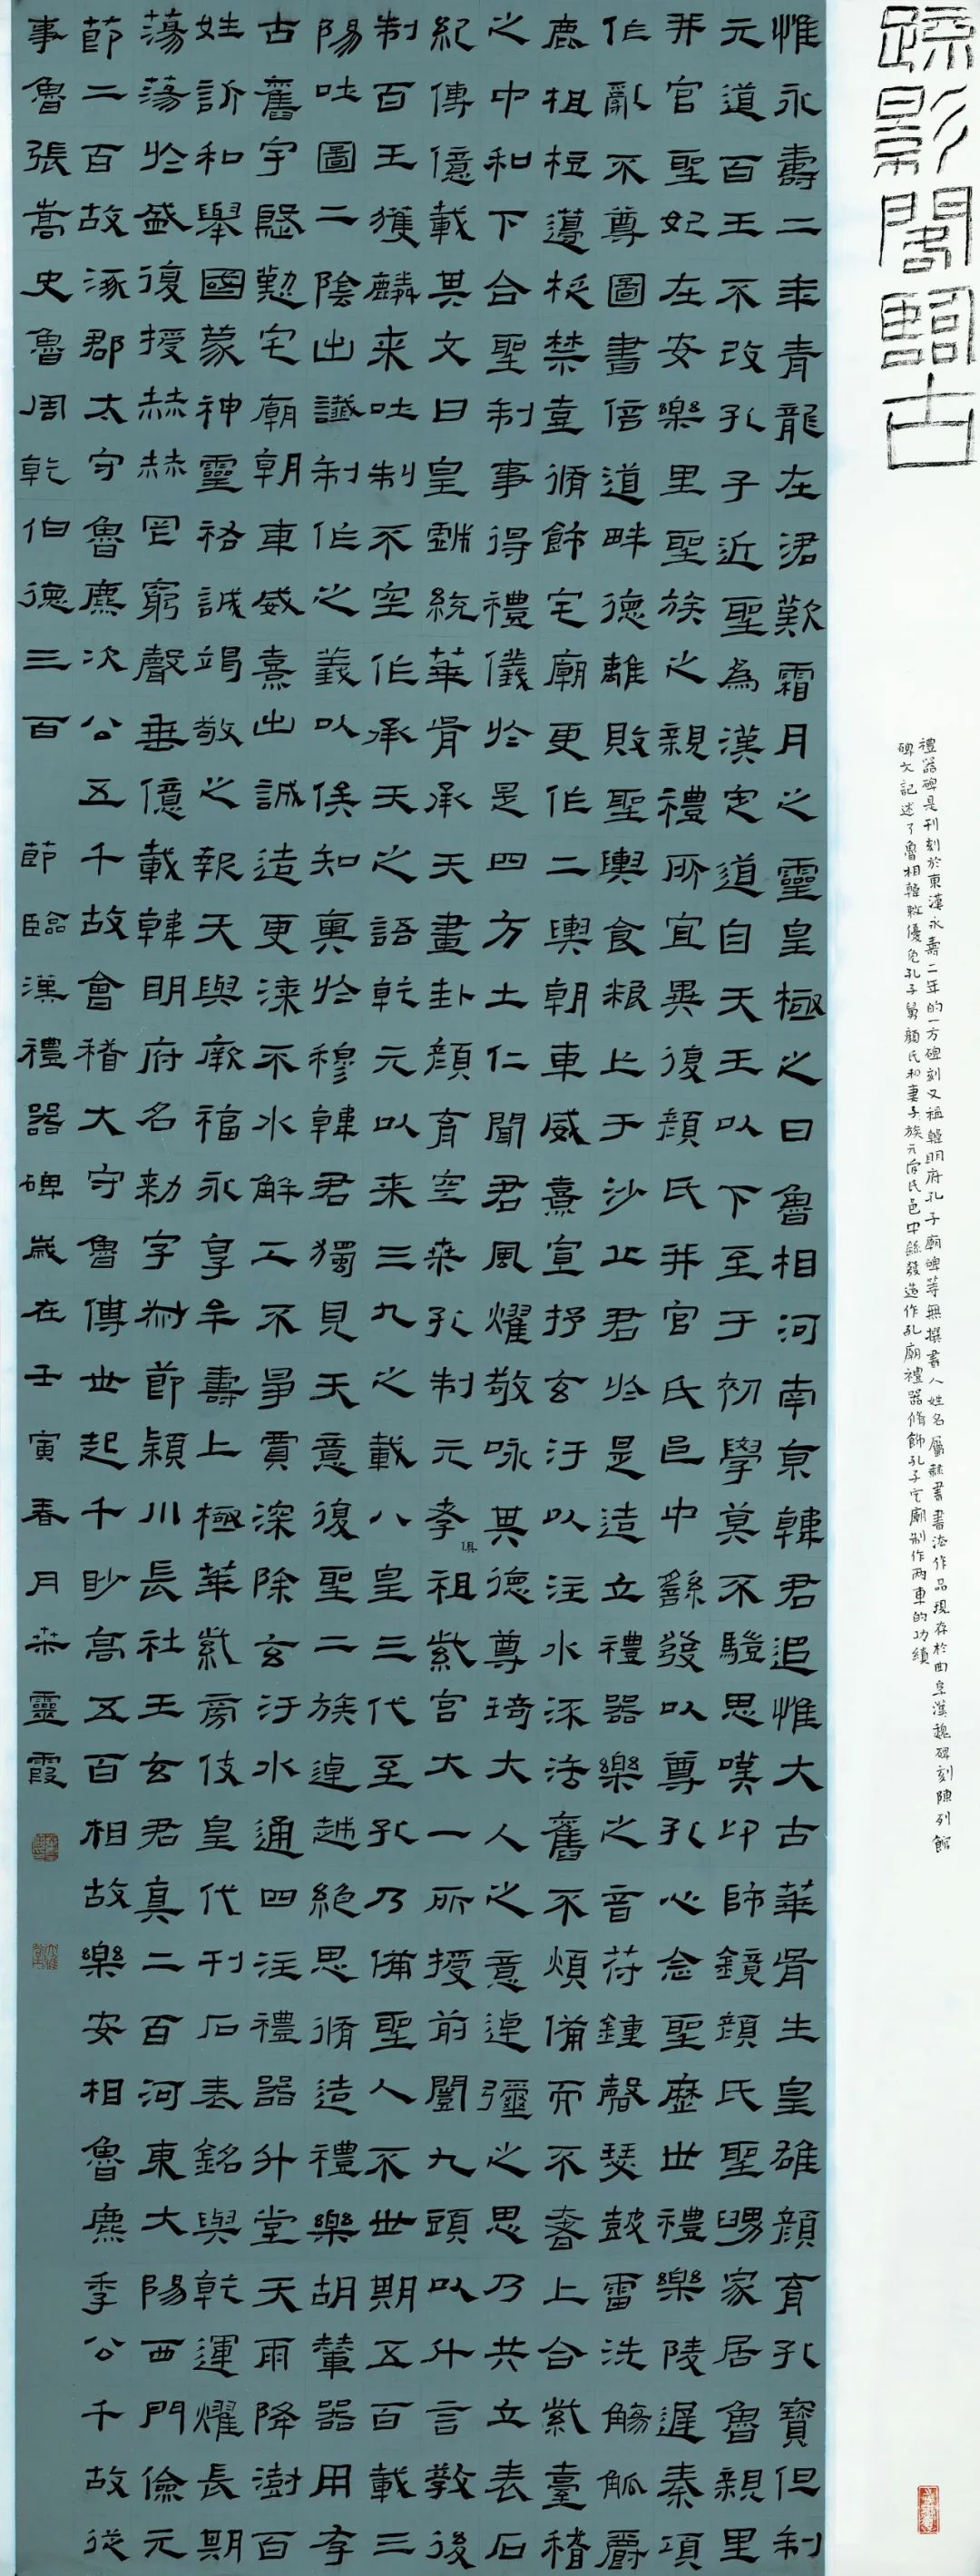 疏影閣臨古
禮器碑是刊刻於東漢永壽二年的一方碑刻又稱韓明府孔子廟碑等無撰書人姓名屬隸書書法作品現存於曲阜漢魏碑刻陳列館
碑文記述了魯相韓敕優免孔子舅顏氏和妻子族亓官氏邑中繇發造作孔廟禮器脩飾孔子宅廟制作兩車的功績
惟永壽二年青龍在涒歎霜月之靈皇極之日魯相河南京韓君追惟大古華胥生皇雄顏育孔寶但制
元道百王不改孔子近聖為漢定道自天王以下至于初學莫不驥思嘆卬師鏡顏氏聖舅家居魯親里
并官聖妃在安樂里聖族之親禮所宜異復顏氏并官氏邑中繇發以尊孔心念聖歷世禮樂陵遲秦項
作亂不尊圖書倍道畔德離敗聖輿食粮亡于沙丘君於是造立禮器樂之音符鍾磬瑟鼓雷洗觴觚爵
鹿柤梪籩柉禁壺脩飾宅廟更作二輿朝車威熹宣抒玄汙以注水流法舊不煩備而不奢上合紫臺稽
之中和下合聖制事得禮儀於是四方土仁聞君風燿敬咏其德尊琦大人之意逴彌之思乃共立表石
紀傳億載其文曰皇戲統華胥承天畫卦顏育空桑孔制元孝俱祖紫宮大一所授前闓九頭以升言教後
制百王獲麟来吐制不空作承天之語乾元以来三九之載八皇三代至孔乃備聖人不世期五百載三
陽吐圖二陰出讖制作之義以俟知奧於穆韓君獨見天意復聖二族逴越絕思脩造禮樂胡輦器用存
古舊宇慇懃宅廟朝車威熹出誠造更漆不水解工不爭賈深除玄汙水通四注禮器升堂天雨降澍百
姓訢和舉國蒙神靈祐誠竭敬之報天與厥福永享牟壽上極華紫旁伎皇代刊石表銘與乾運燿長期
蕩蕩於盛復授赫赫罔窮聲垂億載韓明府名勑字叔節潁川長社王玄君真二百河東大陽西門儉元
節二百故涿郡太守魯麃次公五千故會稽大守魯傅世起千眇高五百相故樂安相魯麃季公千故從
事魯張嵩史魯周乾伯德三百 節臨漢禮器碑歲在壬寅春月荣靈霞